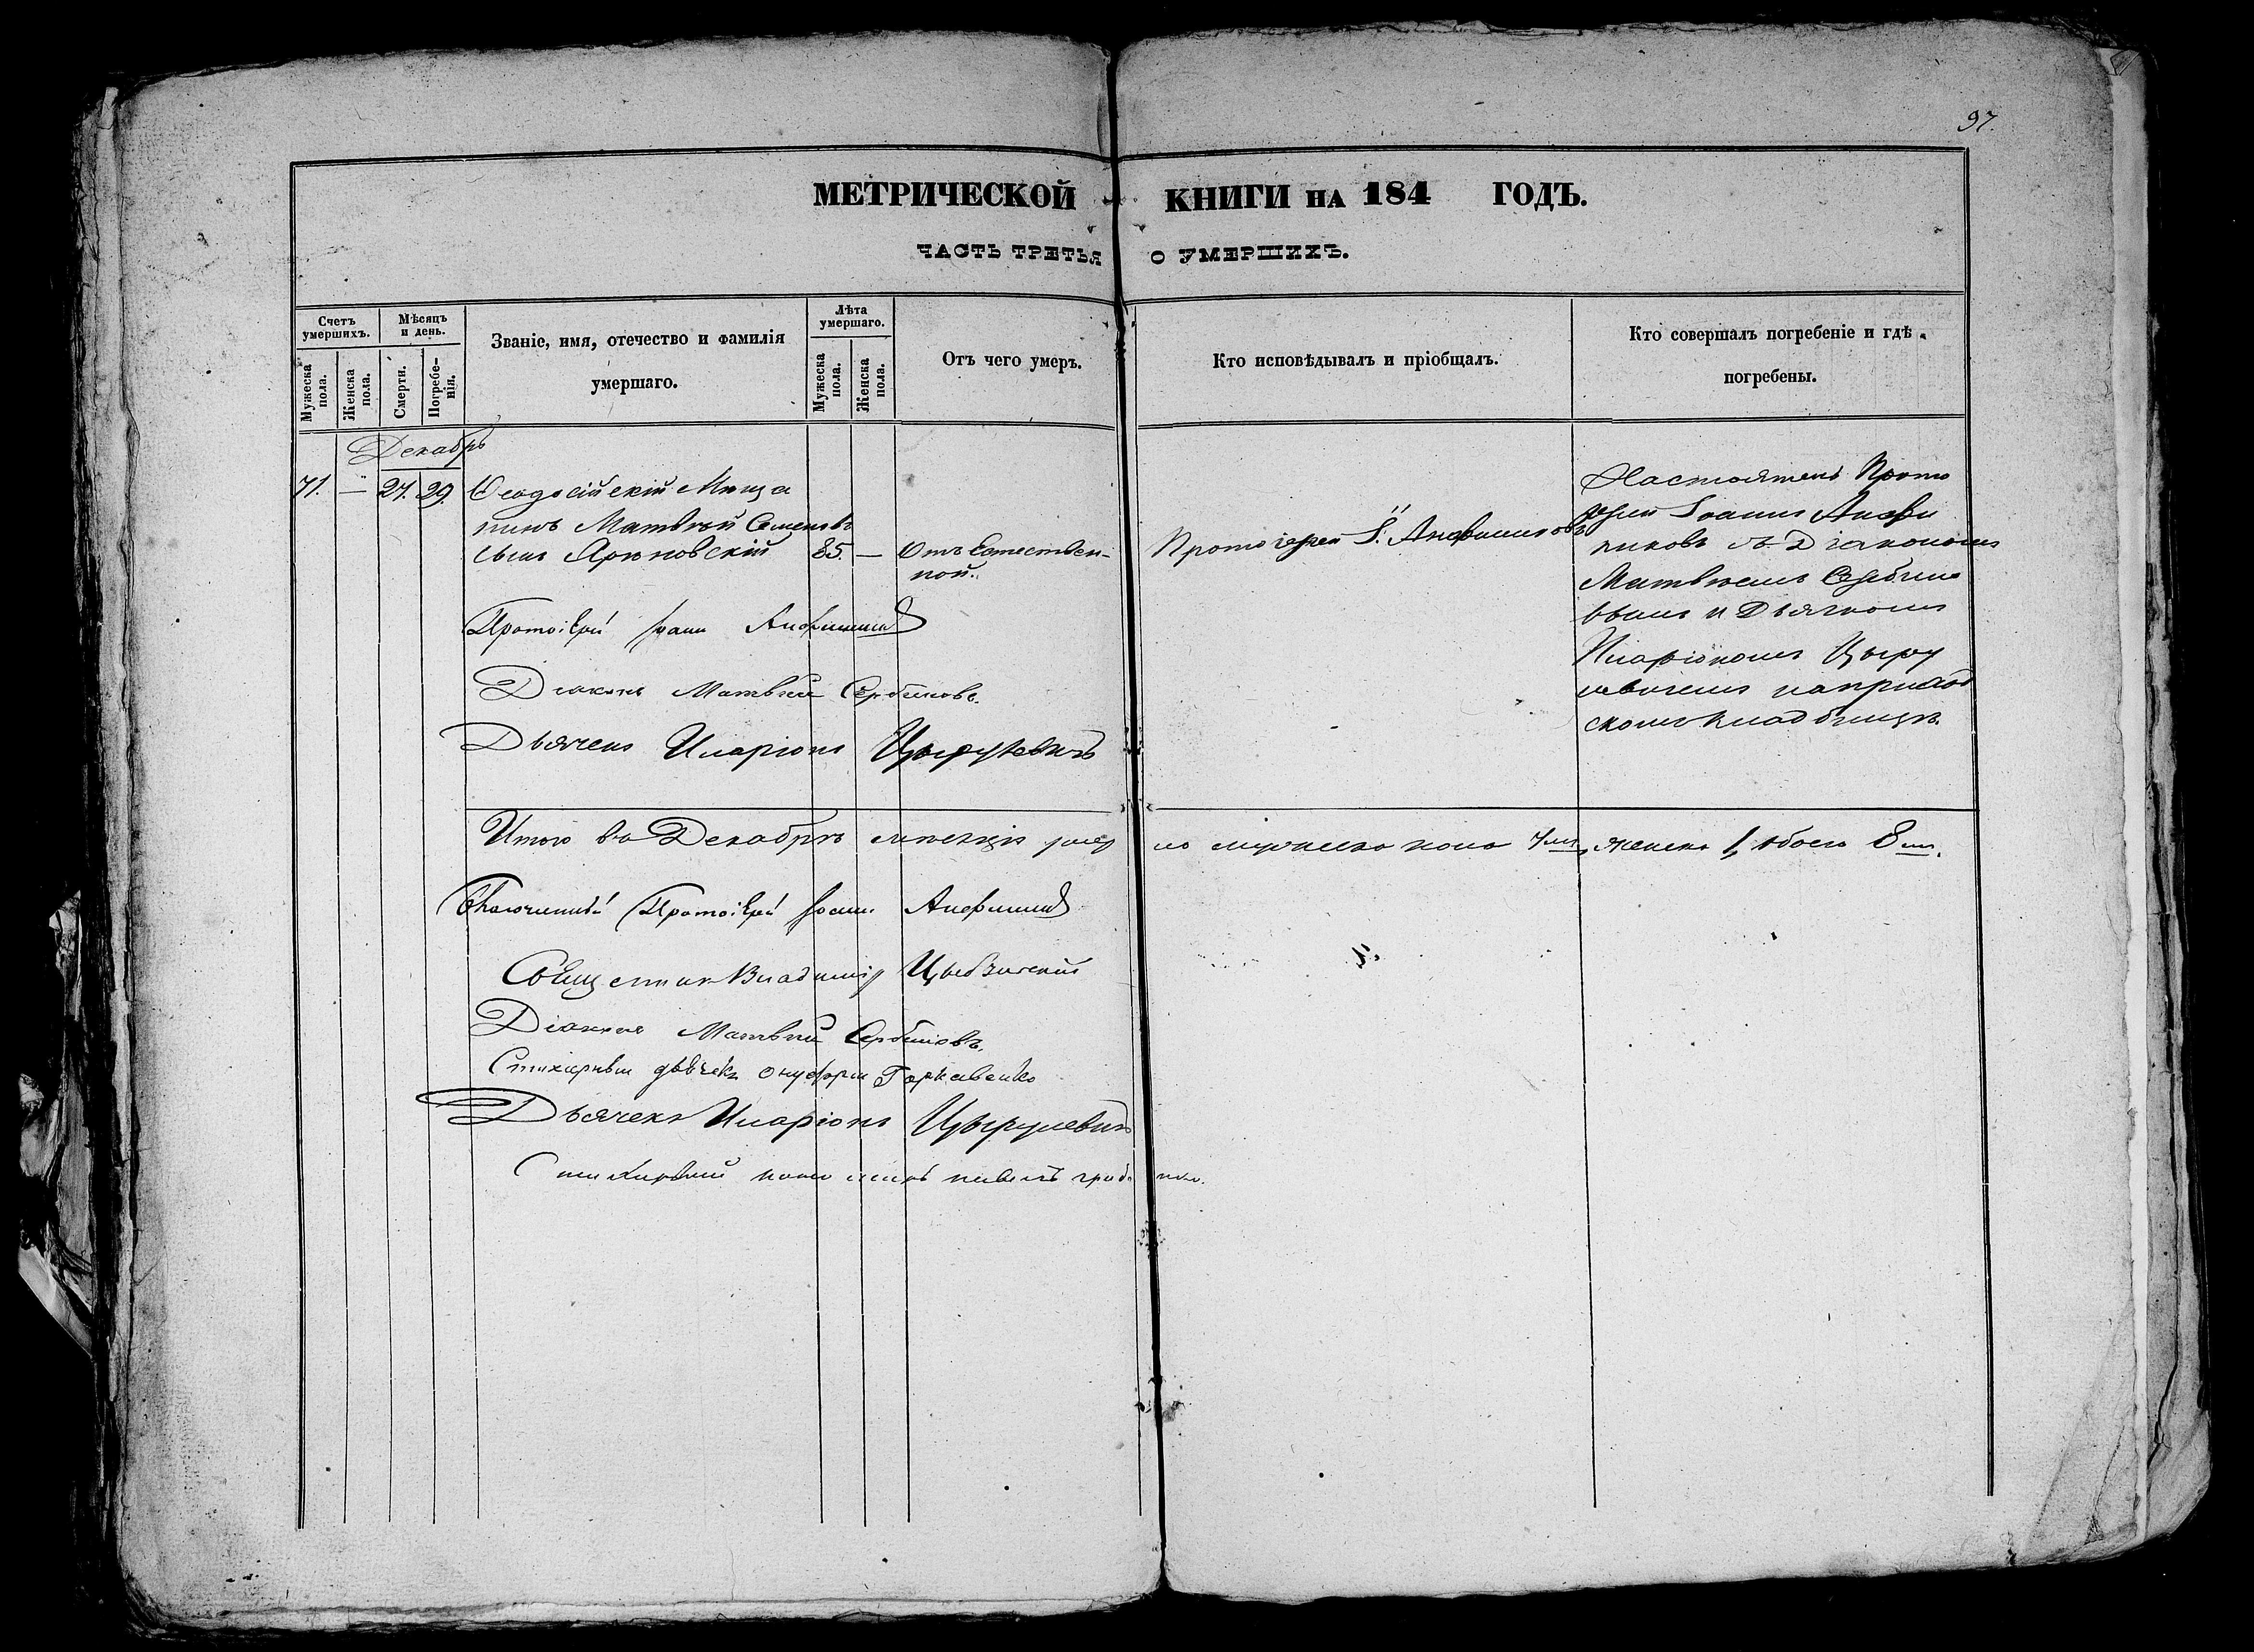 97.
МЕТРИЧЕСКОЙ КНИГИ НА 184 ГОДЪ.
ЧАСТЬ ТРЕТЬЯ О УМЕРШИХЪ.
Счетъ умершихъ.
Мужеска пола.
Женска пола.
Мѣсяцъ и день.
Смерти.
Погребенія.
Званіе, имя, отечество и фамилія
умершаго.
Лѣта умершаго.
Мужеска пола.
Женска пола.
Отъ чего умеръ.
Кто исповѣдывалъ и пріобщалъ.
Кто совершалъ погребеніе и гдѣ
погребены.
Декабрь
71. — 27. 29. Ѳеодосійскій Мѣща
нинъ Матвѣй Семеновъ
сынъ 85. — Отъ Естествен-
ной.
Протоіерей І. Анфиногеновъ
Настоятель Прото
іерей Іоаннъ
съ Діакономъ
Матвѣемъ Сербино
вымъ и Дьячкомъ
Иларіономъ Цыру
левичемъ на приход
скомъ кладбищѣ.
Протоіерей Іоаннъ
Діаконъ Матвѣй Сербиновъ.
Дьячекъ Иларіонъ Цырулевичъ
Итого въ Декабрѣ мѣсяцѣ умер ло мужеска пола 7мь, женска 1, обоего 8мь.
Благочинный Протоіерей Іоаннъ
Священникъ Владиміръ
Діаконъ Матвѣй Сербиновъ.
Стихарный дьячекъ Онуфрій
Дьячекъ Иларіонъ Цырулевичъ
Стихарный пономарь